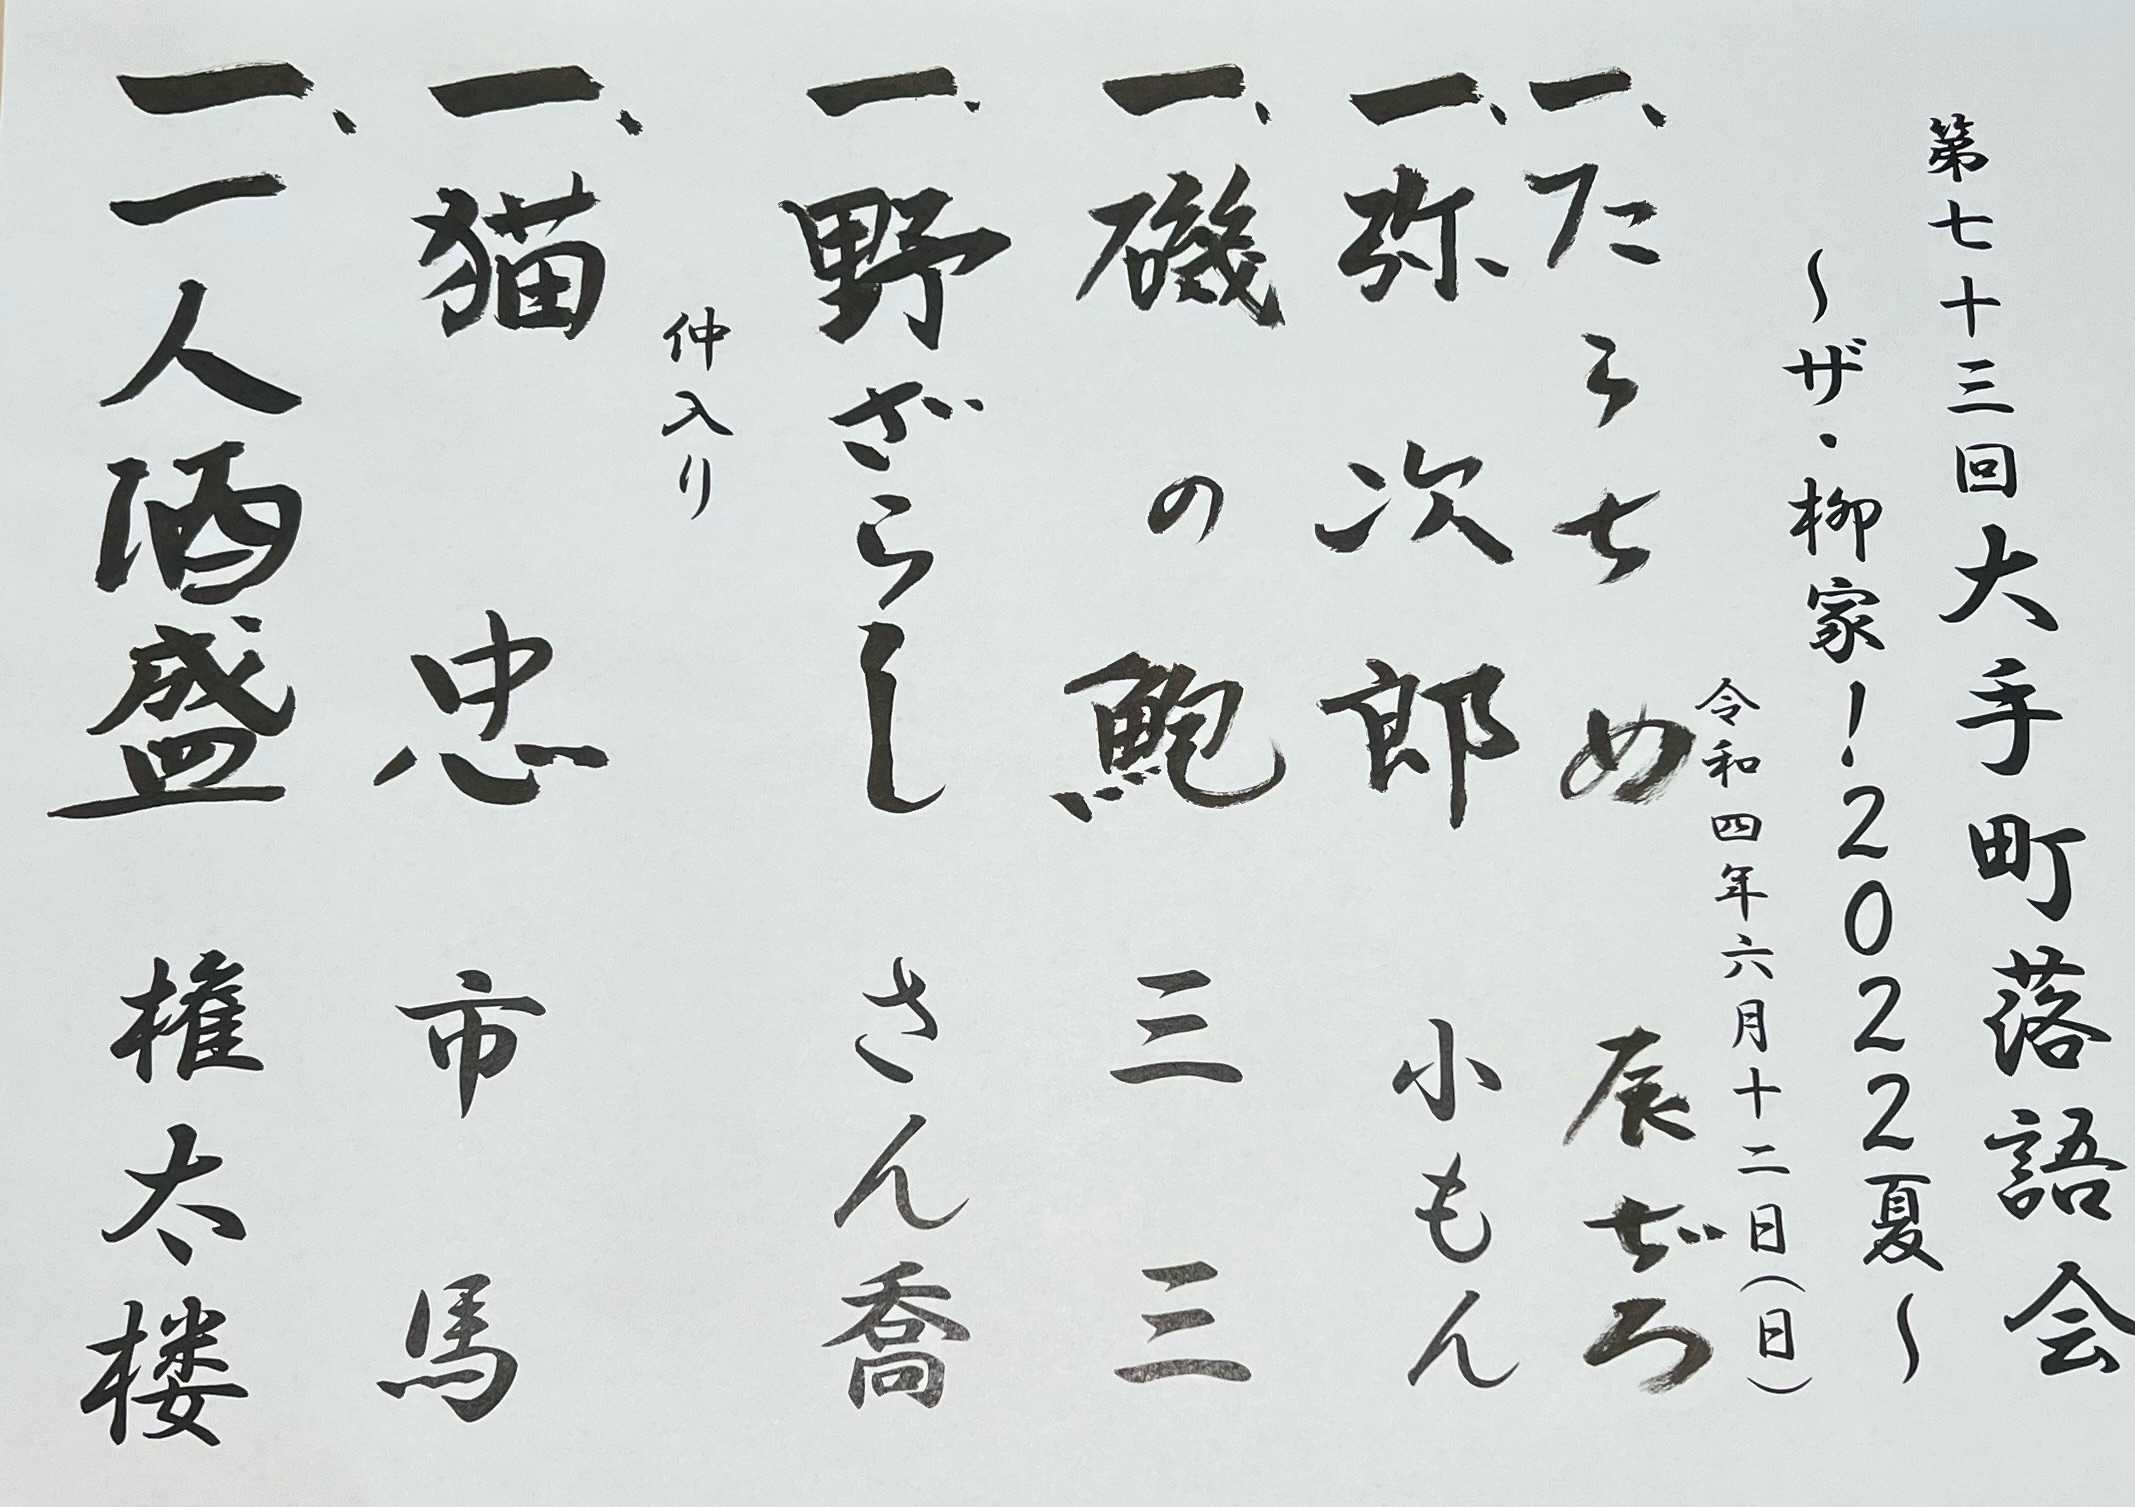 第七十三回大手町落語会
〜ザ・柳家！２０２２夏〜
令和四年六月十二日（日）
一、たらちめ 辰ぢろ
一、弥次郎 小もん
一、磯の鮑 三三
一、野ざらし さん喬
仲入り
一、猫忠 市馬
一、一人酒盛 権太楼